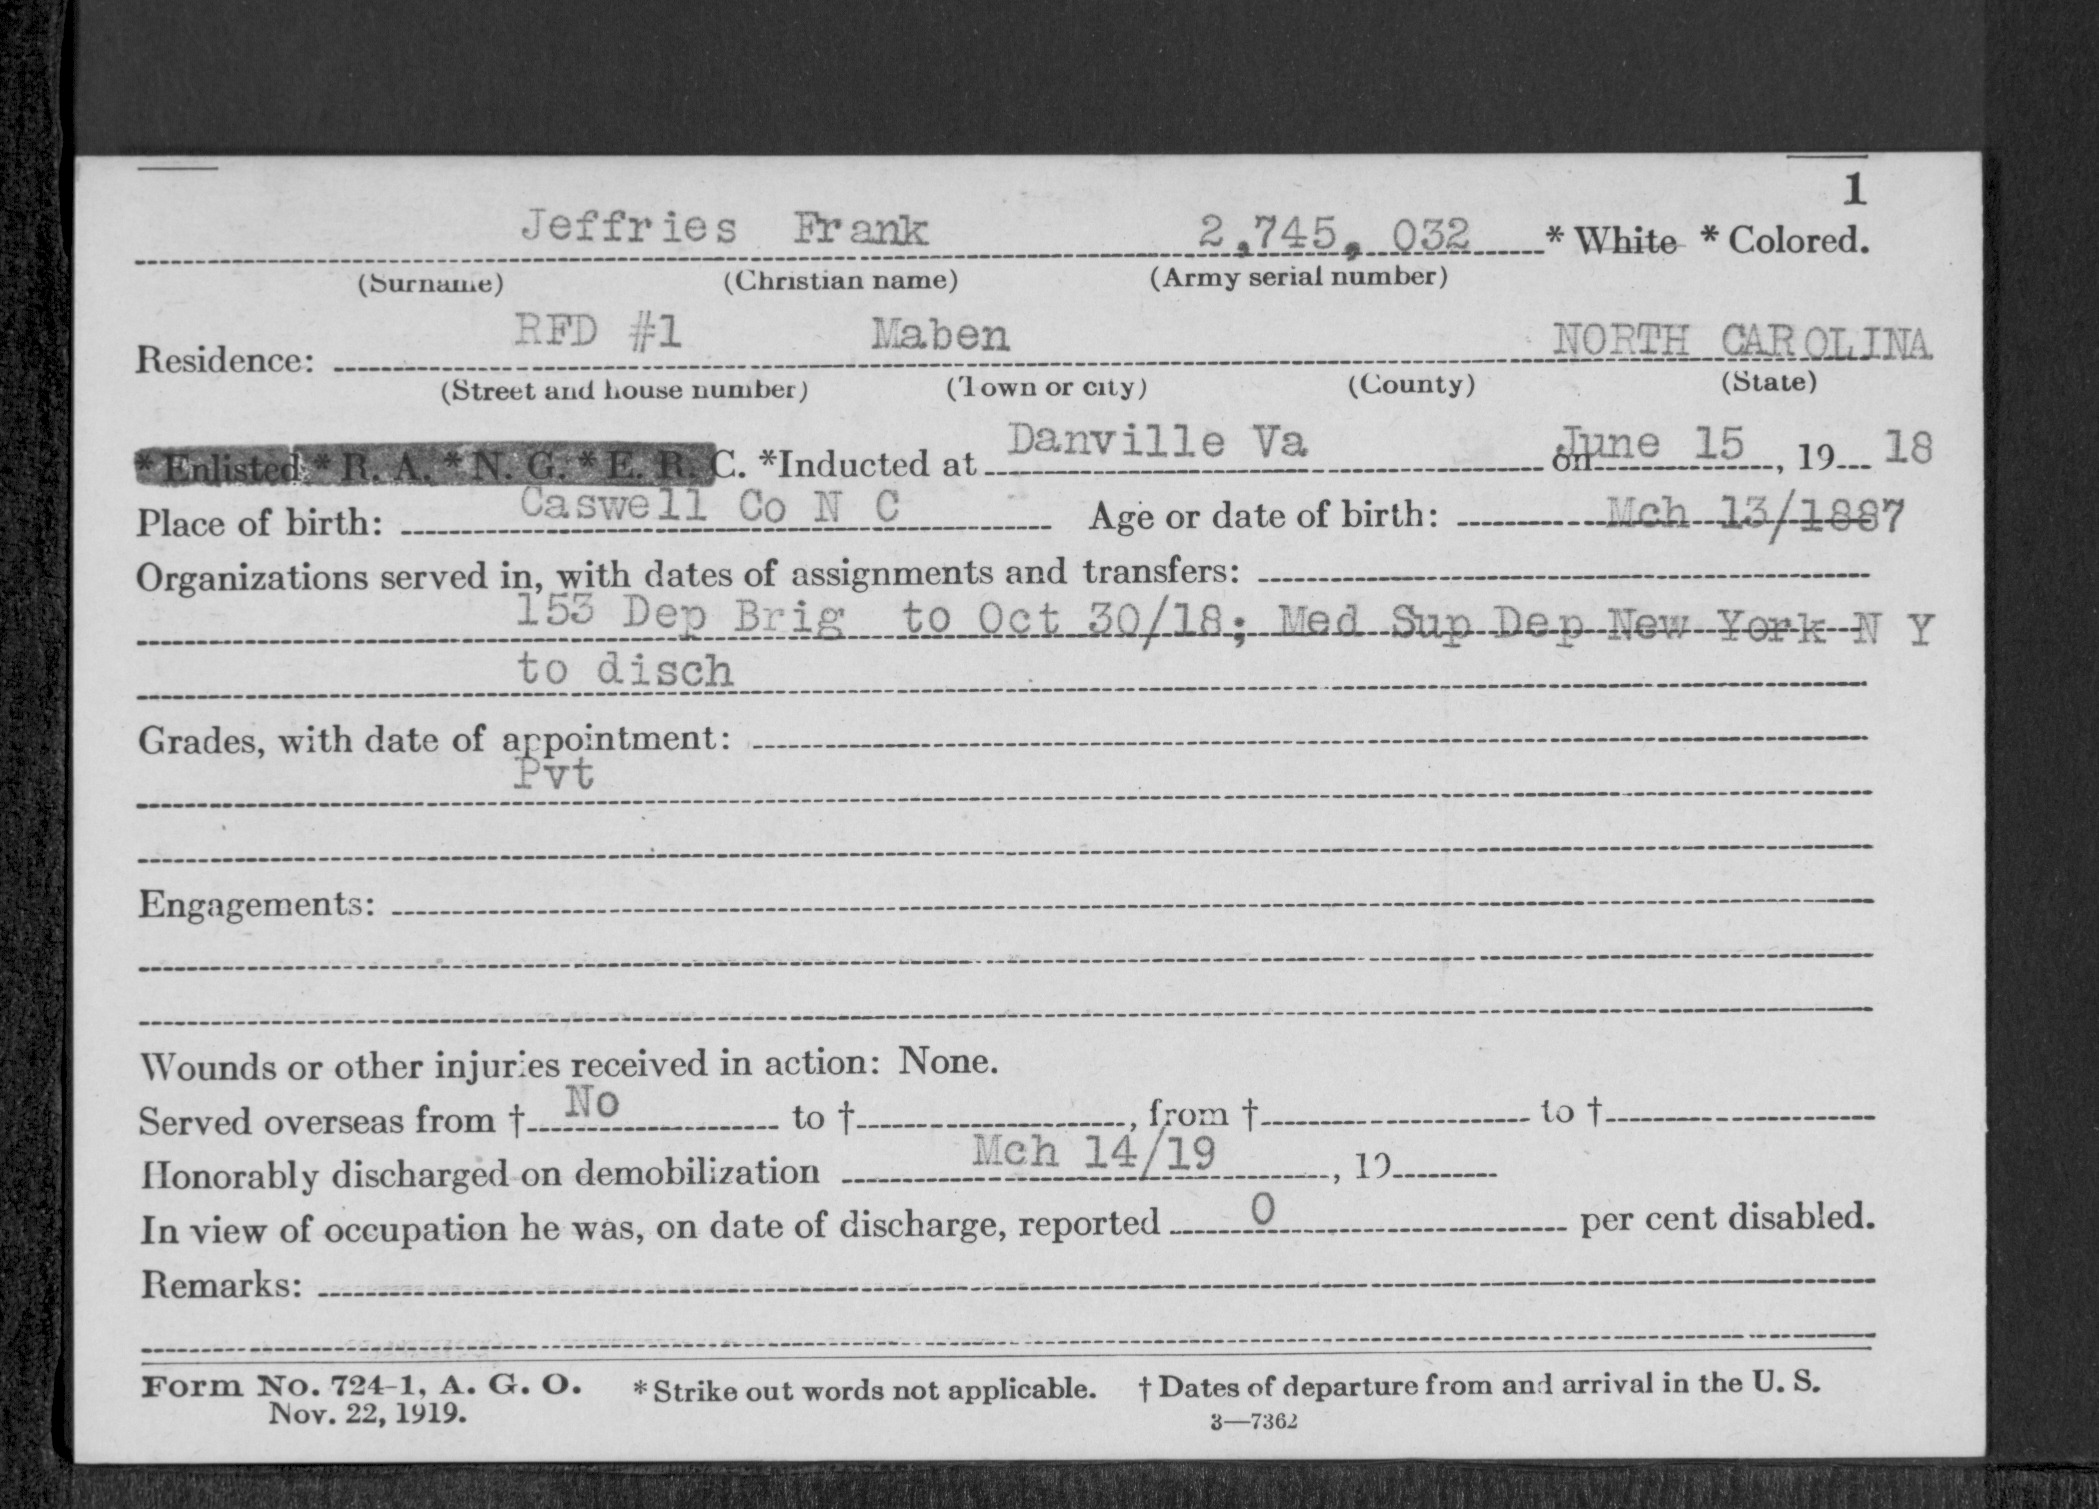 1
Jeffries Frank 2,745, 032 * White * Colored.
(Surname) (Christian name) (Army serial number)
Residence: RFD #1 Maben NORTH CAROLINA
(Street and house number) (Town or city) (County) (State)
* Enlisted * R. A. * N. G. * E. R. C. *Inducted at Danville Va on June 15, 19 18
Place of birth: Caswell Co N C Age or date of birth: Mch 13/1887
Organizations served in, with dates of assignments and transfers:
153 Dep Brig to Oct 30/18; Med Sup Dep New York N Y
to disch
Grades, with date of appointment:
Pvt
Engagements:
Wounds or other injuries received in action: None.
Served overseas from † No to †, from † to †
Honorably discharged on demobilization Mch 14/19, 19
In view of occupation he was, on date of discharge, reported 0 per cent disabled.
Remarks:
Form No. 724-1, A. G. O. * Strike out words not applicable. † Dates of departure from and arrival in the U. S.
Nov. 22, 1919. 3—7362